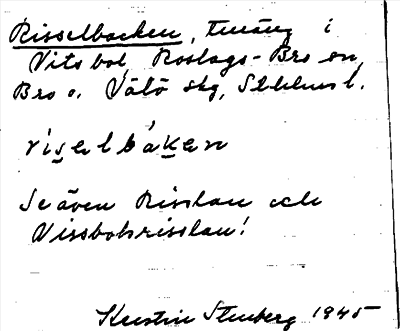 Risselbacken, tmäng i
Vitsbol, Roslags-Bro sn,
Bro o. Vätö skg, Sthlms l.
risalbakan
Se även Risslan och
Vissbohrisslan!
Kerstin Stenberg 1945